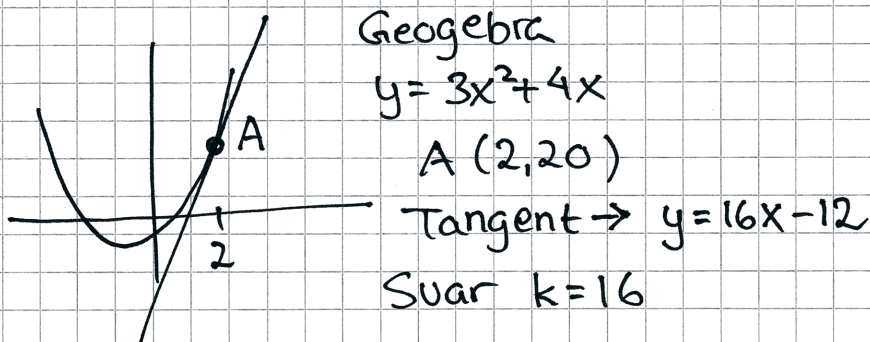 Geogebra
y = 3x² + 4x
A (2,20)
A
Tangent → y = 16x - 12
2
Svar k = 16